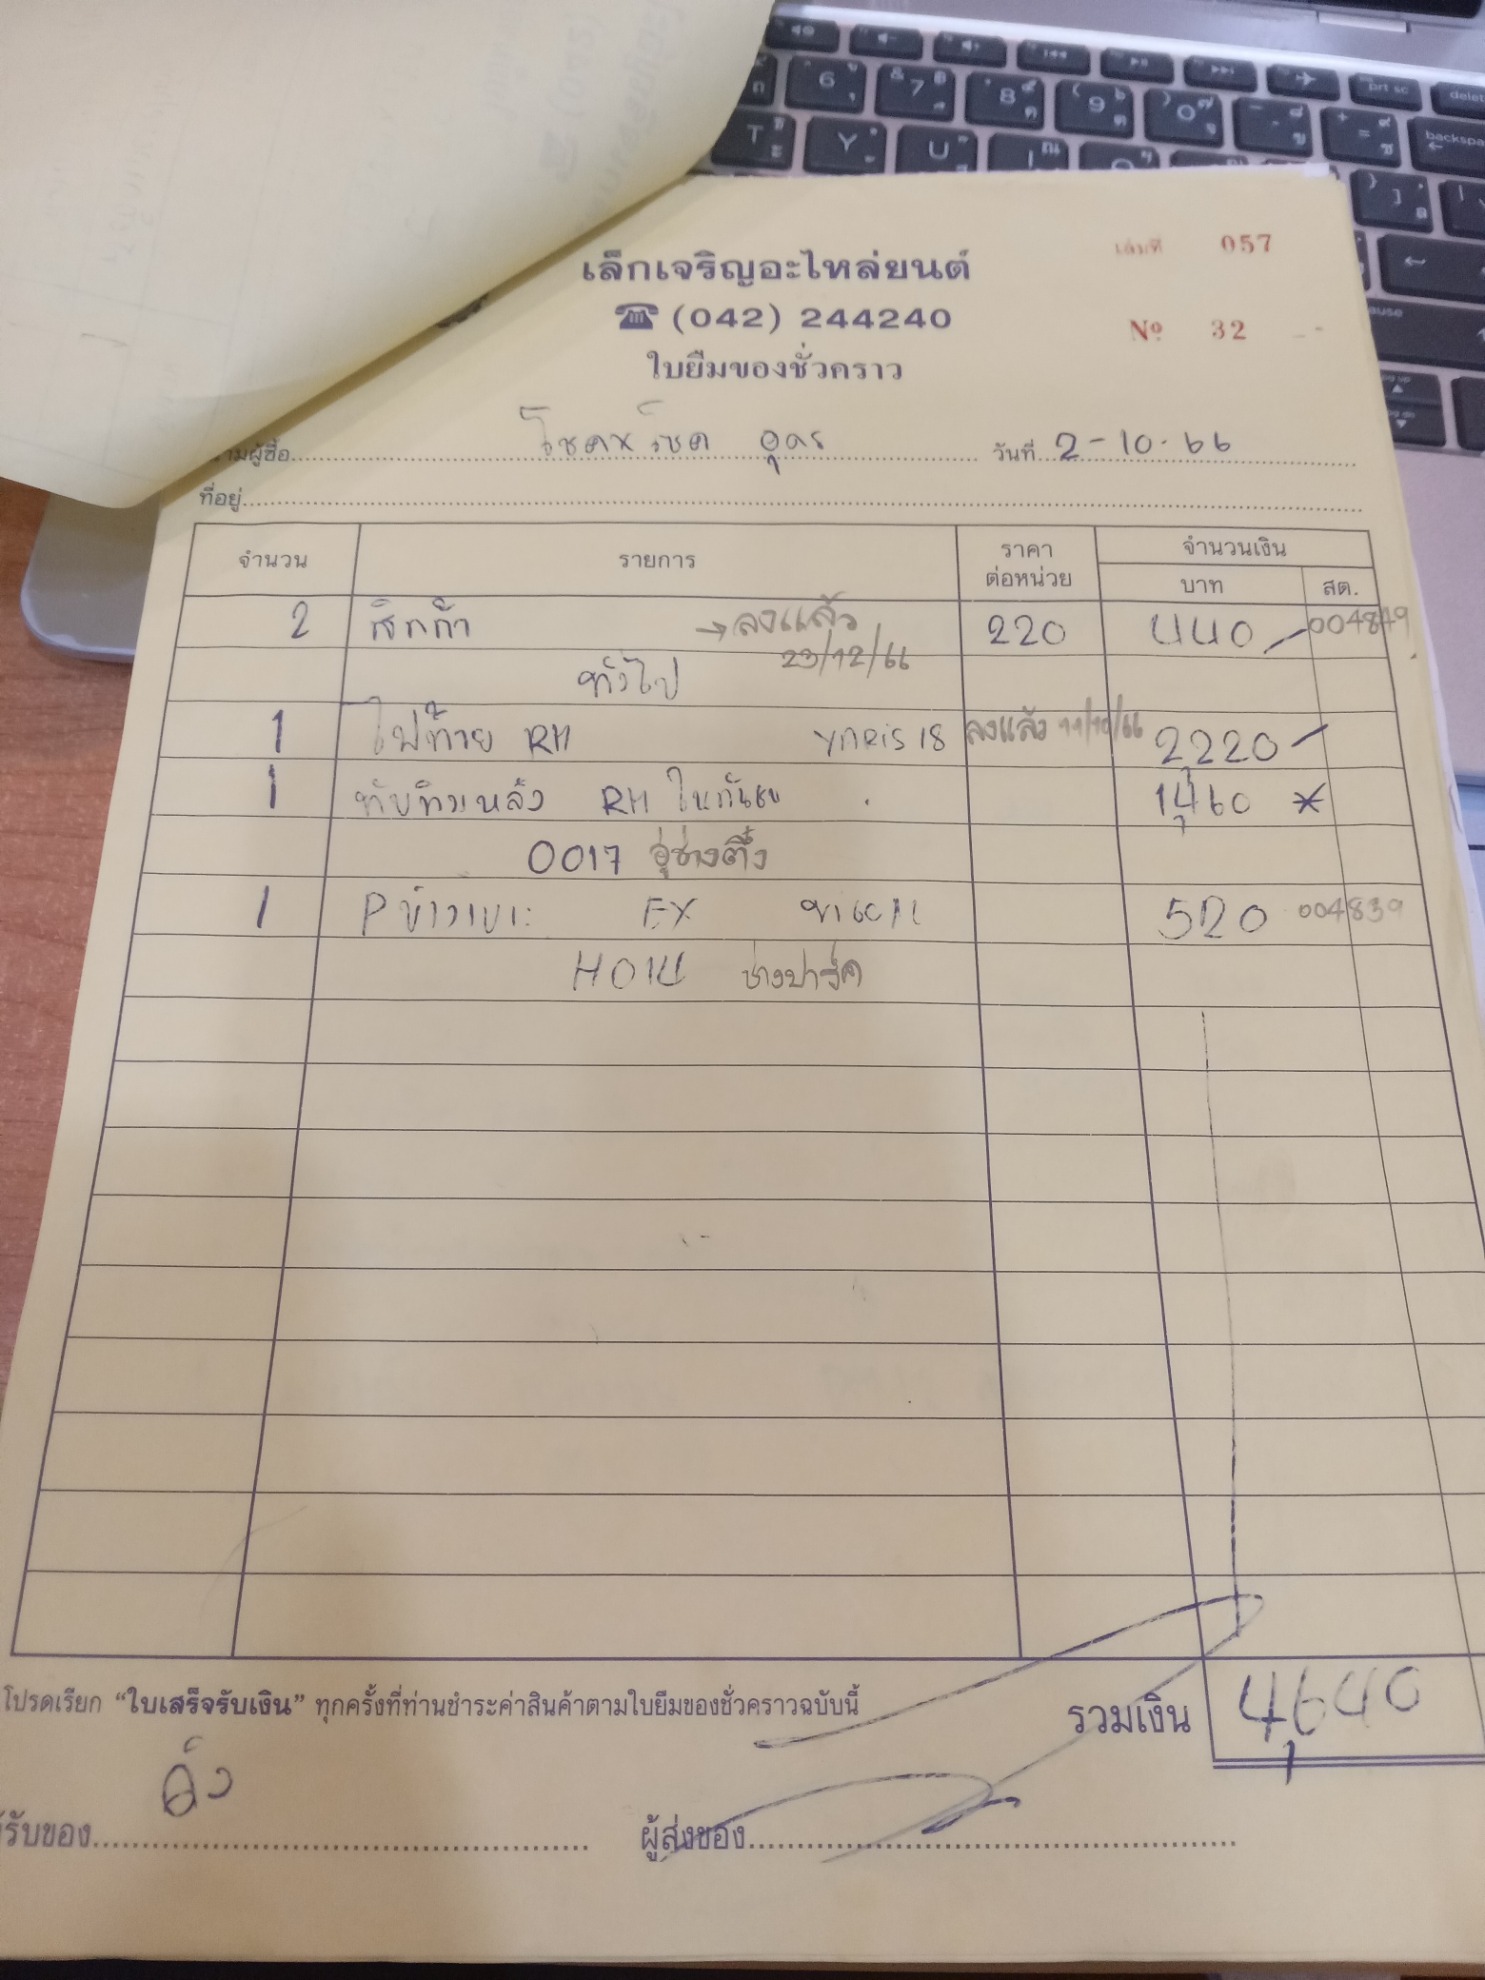 เล่มที่ 057
เล็กเจริญอะไหล่ยนต์
☎ (042) 244240
№ 32
ใบยืมของชั่วคราว
นามผู้ซื้อ โชคxโชค อุดร วันที่ 2-10-66
ที่อยู่
จำนวน รายการ ราคาต่อหน่วย จำนวนเงิน
บาท สต.
2 ซิกก้า →ลงแล้ว 220 440 004849
23/12/66
ทั่วไป
1 ไฟท้าย RH YARIS 18 ลงแล้ว 11/10/66 2,220
1 ทับทิมหลัง RH ในกันชน 1,460 *
0017 อู่ช่างตึ๋ง
1 520 004839
ช่างปาร์ค
โปรดเรียก “ใบเสร็จรับเงิน” ทุกครั้งที่ท่านชำระค่าสินค้าตามใบยืมของชั่วคราวฉบับนี้ รวมเงิน 4,640
ผู้รับของ ผู้ส่งของ